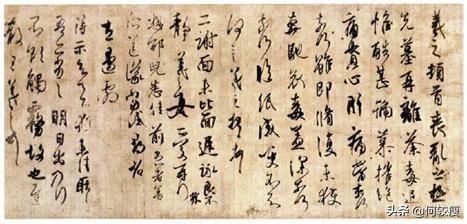 羲之頓首喪亂之極
先墓再離荼毒追
惟酷甚號慕摧絕
痛貫心肝痛當奈何
奈何雖即脩復未獲
奔馳哀毒益深奈何
奈何臨紙感哽不知
何言羲之頓首頓首
二謝面未比面遲詠良不
靜羲之女愛再拜
想邵兒悉佳前患者善
所送議當試尋省
左邊劇
得示知足下猶未佳耿耿
吾亦劣劣明日出乃行
不欲觸霧故也遲
散王羲之頓首
头条